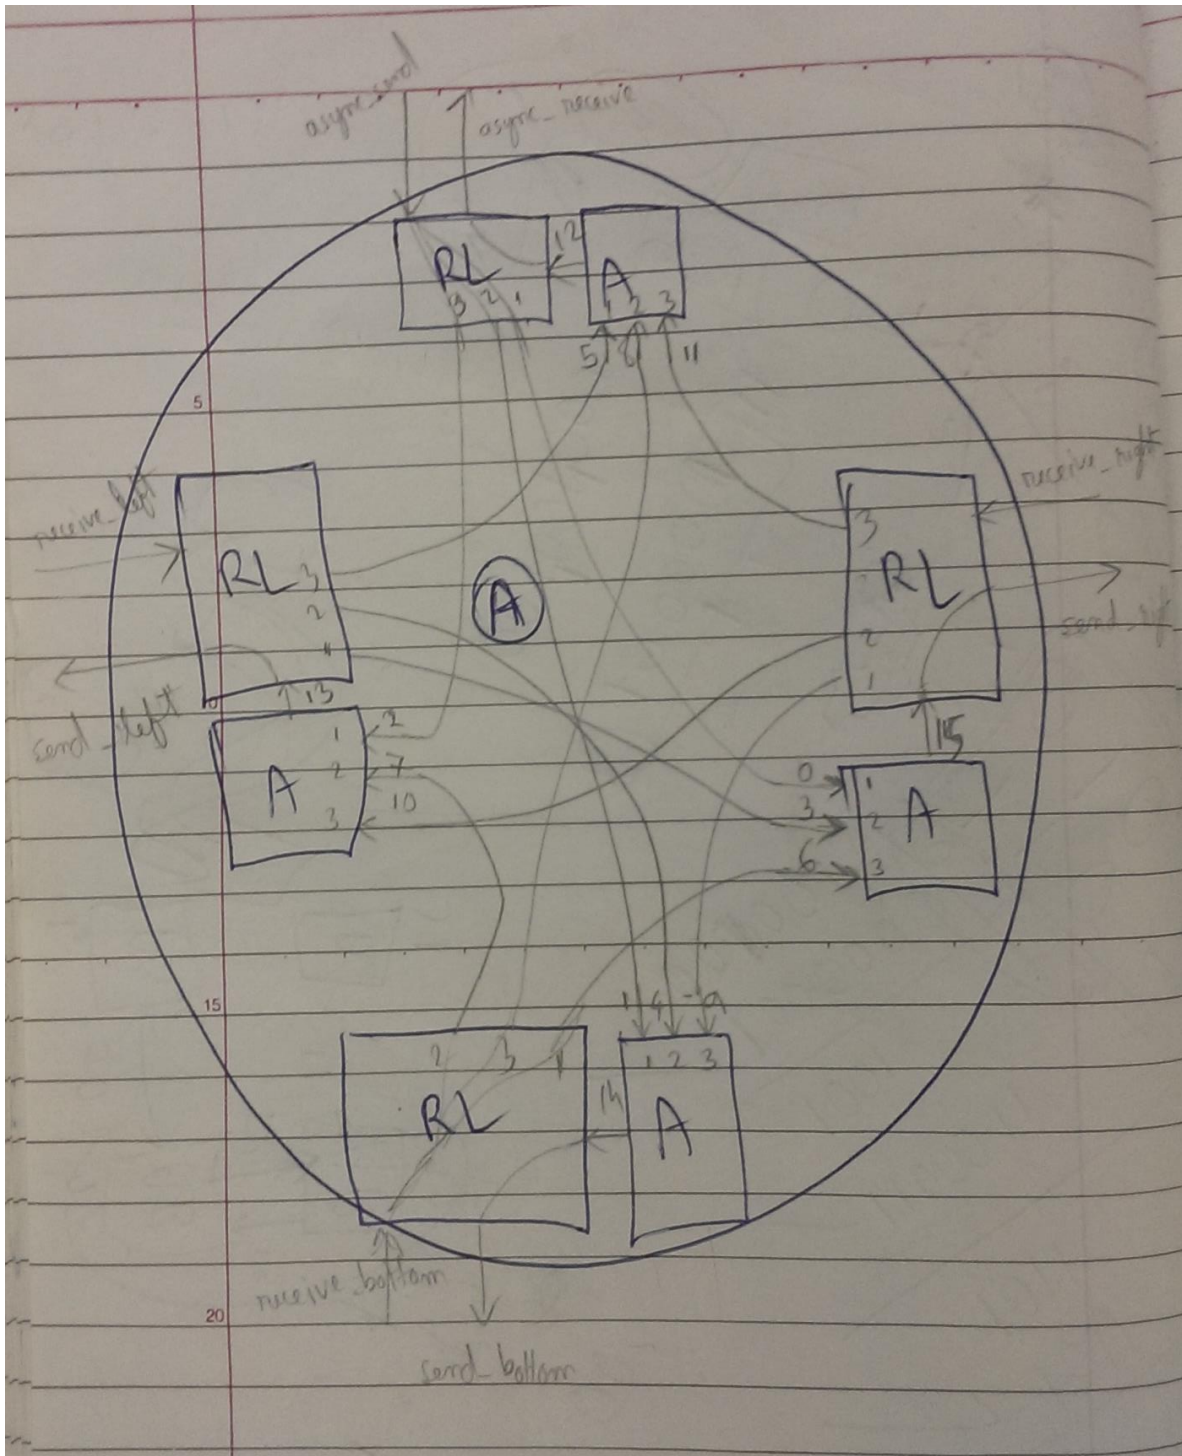 async_send
async_receive
RL
3 2 1
12
A
1 2 3
5 8 11
5
receive_left
RL
3
2
1
send_left
13
A
1
2
3
2
7
10
A
receive_right
3
RL
2
1
15
0
3
6
A
1
2
3
15
1 4 9
2 3 1
RL
14
1 2 3
A
receive_bottom
20
send_bottom